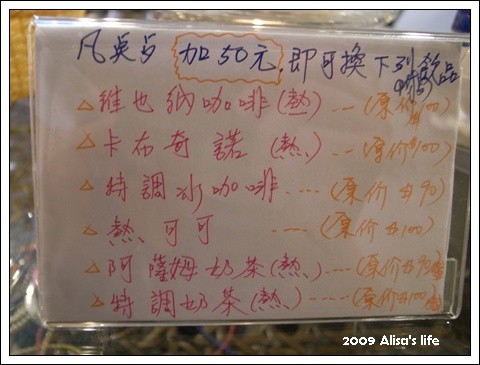 凡桌夕 加50元,即可換下列飲品
△維也納咖啡(熱) --- (原价$100)
△卡布奇諾(熱、) --- (原价$100)
△特調冰咖啡 ---- (原价$90)
△熱、可可 --- (原价$100)
△阿薩姆奶茶(熱、) --- (原价$90)
△特調奶茶(熱、) ---- (原价$100)
2009 Alisa's life